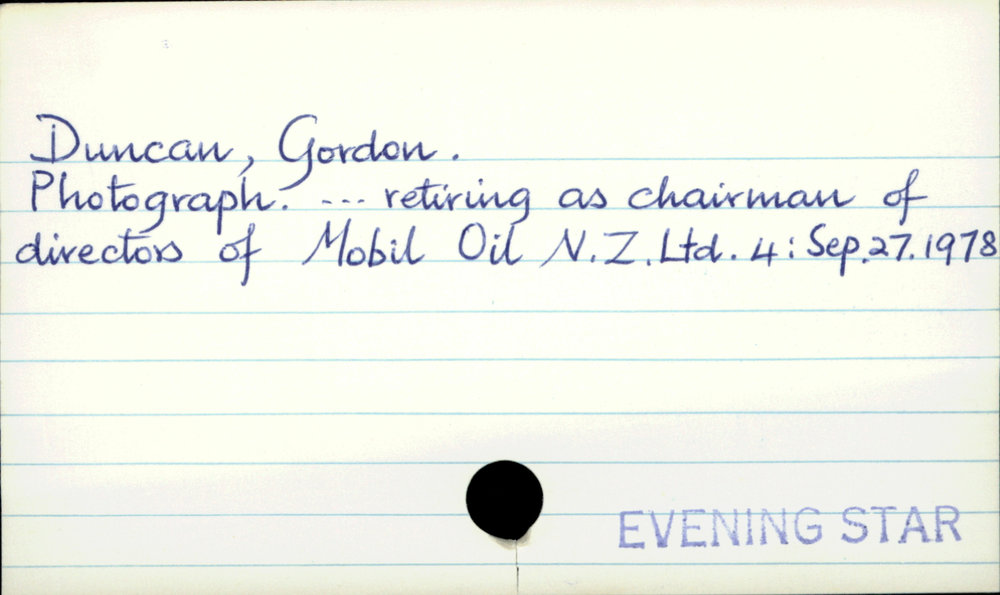 Duncan, Gordon.
Photograph. --- retiring as chairman of
directors of Mobil Oil N.Z. Ltd. 4: Sep.27.1978
EVENING STAR